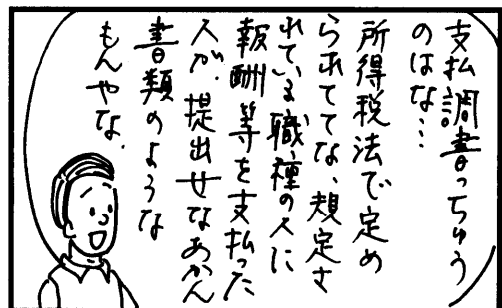 支払調書っちゅう
のはな…
所得税法で定め
られててな、規定さ
れている職種の人に
報酬等を支払った
人が、提出せなあかん
書類のような
もんやな。